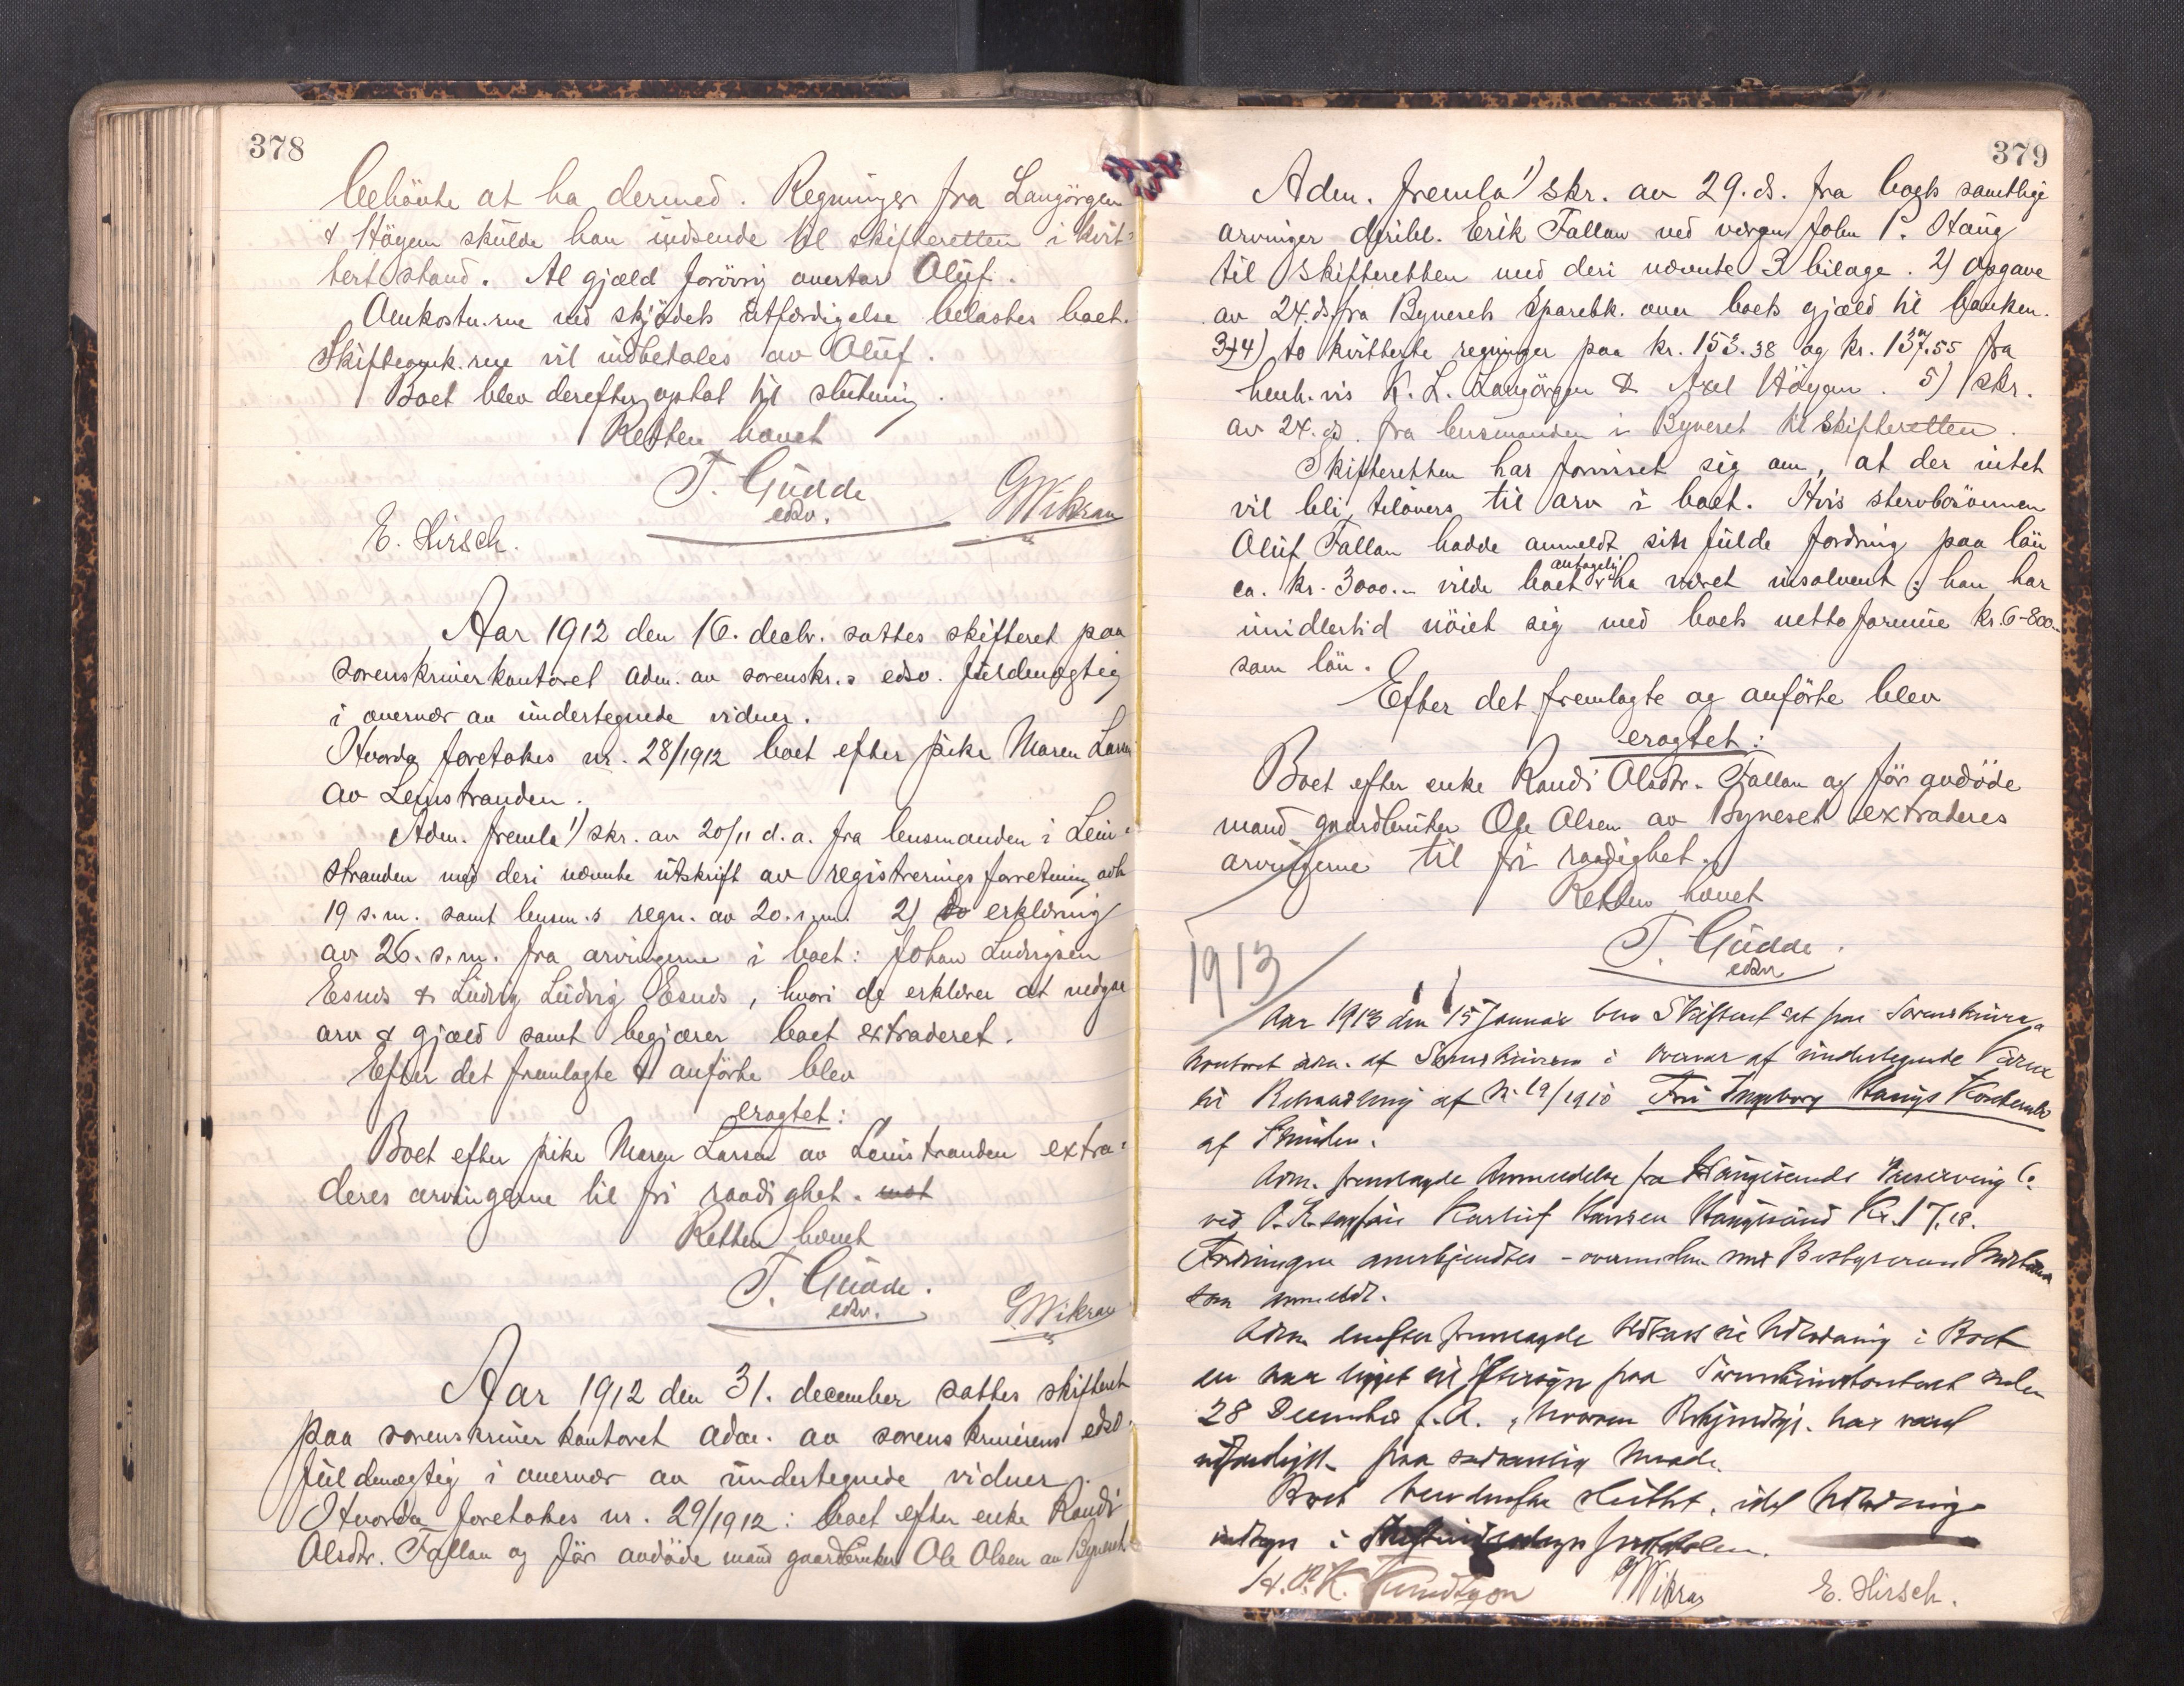 378
behövte at ha dermed. Regninger fra Langörgen
& Höyem skulde han indsende til skifteretten i kvit-
tert stand. Al gjæld forövrig overtar Oluf.
Omkostn.rne ved skjödets utfærdigelse belastes boet.
Skifteomk.rne vil indbetales av Oluf.
Boet blev derefter optat til slutning.
Retten hævet
T. Gudde
edsv.
GWikran
E. Hirsch.
Aar 1912 den 16. decbr. sattes skifteret paa
sorenskriverkontoret adm. av sorenskr.s edsv. fuldmægtig
i overvær av undertegnede vidner.
Hvorda foretokes nr. 28/1912 boet efter pike Maren Larsen
av Leinstranden.
Adm. fremla 1) skr. av 20/11 d. a. fra lensmanden i Lein-
stranden med deri nævnte utskrift av registreringsforretning avh.
19 s. m. samt lensm.s regn. av 20. s. m. 2) do erklæring
av 26. s. m. fra arvingerne i boet: Johan Ludvigsen
Esnes & Ludvig Ludvig Esnes, hvori de erklærer at vedgaa
arv & gjæld samt begjærer boet extraderet.
Efter det fremlagte & anförte blev
eragtet:
Boet efter pike Maren Larsen av Leinstranden extra-
deres arvingerne til fri raadighet.
Retten hævet
T. Gudde.
edsv.
GWikran
Aar 1912 den 31. december sattes skifteret
paa sorenskriverkontoret adm. av sorenskriverens edsv.
fuldmægtig i overvær av undertegnede vidner.
Hvorda foretokes nr. 29/1912: boet efter enke Randi
Olsdtr. Fallan og för avdöde mand gaardbruker Ole Olsen av Byneset
379
Adm. fremla 1) skr. av 29. ds. fra boets samtlige
arvinger deribl. Erik Fallan ved vergen John P. Haug
til skifteretten med deri nævnte 3 bilage. 2) Opgave
av 24. ds. fra Bynesets Sparebk. over boets gjæld til banken.
3+4) to kvitterte regninger paa kr. 153.38 og kr. 137.55 fra
henh.vis K. L. Langörgen & Axel Höyem. 5) skr.
av 24. ds. fra lensmanden i Byneset til skifteretten.
Skifteretten har forvisset sig om, at der intet
vil bli tilovers til arv i boet. Hvis stervbosönnen
Oluf Fallan hadde anmeldt sin fulde fordring paa lön
ca. kr. 3000.- vilde boet antagelig ha været insolvent; han har
imidlertid nöiet sig med boets netto formue kr. 6-800.-
som lön.
Efter det fremlagte og anförte blev
eragtet:
Boet efter enke Randi Olsdtr. Fallan og för avdöde
mand gaardbruker Ole Olsen av Byneset extraderes
arvingerne til fri raadighet.
Retten hævet
T. Gudde.
edsv
1913
Aar 1913 den 15 Januar blev Skifteret sat paa Sorenskriver-
kontoret adm. af Sorenskriveren i Overvær af undertegnede Vidner
til Behandling af N. 19/1910 Fru Ingeborg Haugs Konkursbo
af
Adm. fremlagde Anmeldelse fra Haugesunds Preserving Co.
ved O. R. sagfører Haugesund Kr. 17,18.
Fordringen anerkjendtes
som anmeldt.
Adm. derefter fremlagde Udkast til Udlodning i Boet
der har ligget til Eftersyn paa Sorenskriverkontoret siden
28 December f. A., hvorom Bekjendtgj. har været
paa sædvanlig Maade.
Boet blev derefter sluttet, idet Udlodning
indtages i
GWikran
E. Hirsch.